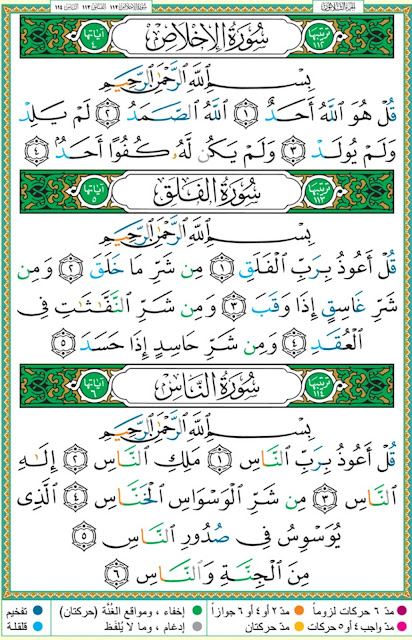 الجزء الثلاثون الإخلاص ١١٢ الفلق ١١٣ الناس ١١٤
ترتيبها ١١٢ سُورَةُ الإِخْلَاصِ آياتها ٤
بِسْمِ ٱللَّهِ ٱلرَّحْمَٰنِ ٱلرَّحِيمِ
قُلْ هُوَ ٱللَّهُ أَحَدٌ ١ ٱللَّهُ ٱلصَّمَدُ ٢ لَمْ يَلِدْ
وَلَمْ يُولَدْ ٣ وَلَمْ يَكُن لَّهُۥ كُفُوًا أَحَدٌ ٤
ترتيبها ١١٣ سُورَةُ الفَلَقِ آياتها ٥
بِسْمِ ٱللَّهِ ٱلرَّحْمَٰنِ ٱلرَّحِيمِ
قُلْ أَعُوذُ بِرَبِّ ٱلْفَلَقِ ١ مِن شَرِّ مَا خَلَقَ ٢ وَمِن
شَرِّ غَاسِقٍ إِذَا وَقَبَ ٣ وَمِن شَرِّ ٱلنَّفَّٰثَٰتِ فِى
ٱلْعُقَدِ ٤ وَمِن شَرِّ حَاسِدٍ إِذَا حَسَدَ ٥
ترتيبها ١١٤ سُورَةُ النَّاسِ آياتها ٦
بِسْمِ ٱللَّهِ ٱلرَّحْمَٰنِ ٱلرَّحِيمِ
قُلْ أَعُوذُ بِرَبِّ ٱلنَّاسِ ١ مَلِكِ ٱلنَّاسِ ٢ إِلَٰهِ
ٱلنَّاسِ ٣ مِن شَرِّ ٱلْوَسْوَاسِ ٱلْخَنَّاسِ ٤ ٱلَّذِى
يُوَسْوِسُ فِى صُدُورِ ٱلنَّاسِ ٥
مِنَ ٱلْجِنَّةِ وَٱلنَّاسِ ٦
مدّ ٦ حركات لزوماً مدّ ٢ أو ٤ أو ٦ جوازاً إخفاء ، ومواقع الغُنَّة (حركتان) تفخيم
مدّ واجب ٤ أو ٥ حركات مدّ حركتان إدغام ، وما لا يُلفَظ قلقلة